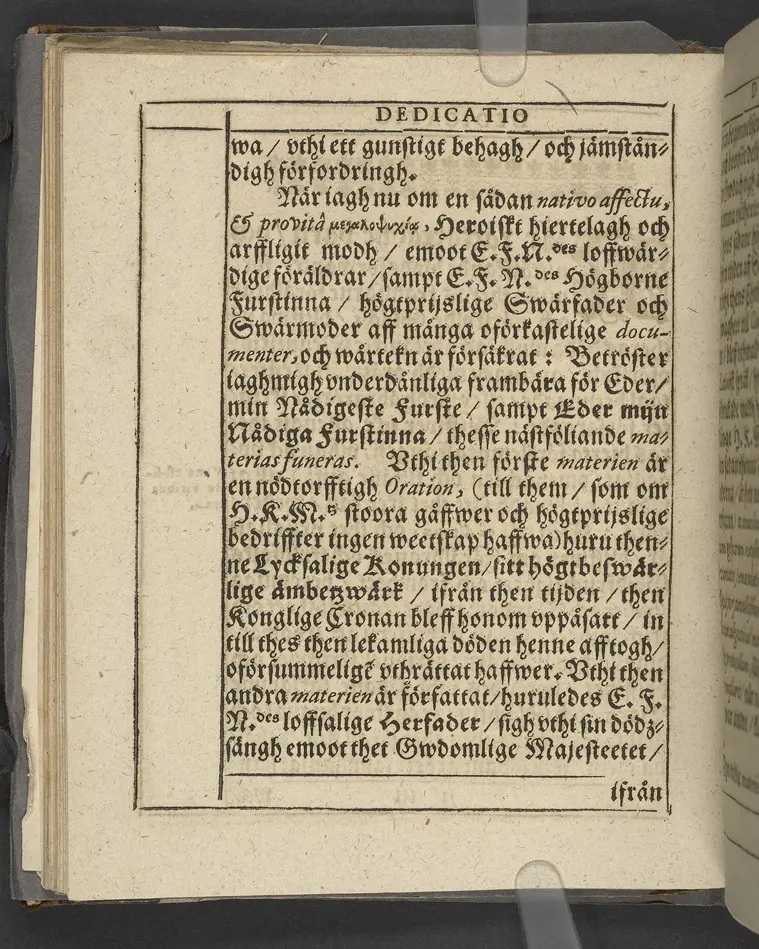 DEDICATIO
wa / vthi ett gunstigt behagh / och jämstån⸗
digh förfordringh.
När iagh nu om en sådan nativo affectu,
& provitâ μεγαλοψυχίᾳ, Heroiskt hiertelagh och
arffligit modh / emoot E.F.N.des loffwär⸗
dige föräldrar / sampt E.F.N.des Högborne
Furstinna / högtprijslige Swärfader och
Swärmoder aff många oförkastelige docu-
menter, och wårtekn är försäkrat : Betröster
iagh migh vnderdånliga frambära för Eder /
min Nådigeste Furste / sampt Eder mijn
Nådiga Furstinna / thesse nästföliande ma⸗
terias funeras. Vthi then förste materien är
en nödtorfftigh Oration, (till them / som om
H.K.M.s stoora gåffwer och högtprijslige
bedriffter ingen weetskap haffwa) huru then⸗
ne Lycksalige Konungen / sitt högtbeswär⸗
lige ämbetzwärk / ifrån then tijden / then
Konglige Cronan bleff honom vppåsatt / in
till thes then lekamliga döden henne afftogh /
oförsummeligẽ vthrättat haffwer. Vthi then
andra materien är författat / huruledes E. F.
N.des loffsalige Herfader / sigh vthi sin dödz⸗
sängh emoot thet Gwdomlige Majesteetet /
ifrån